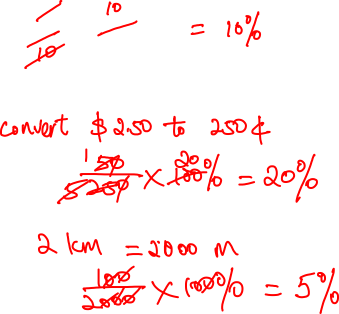 10
10 = 10%
convert $2.50 to 250¢
1 50
5 250 × 100% 20 = 20%
2 km = 2000 m
100
2000 × 100% = 5%